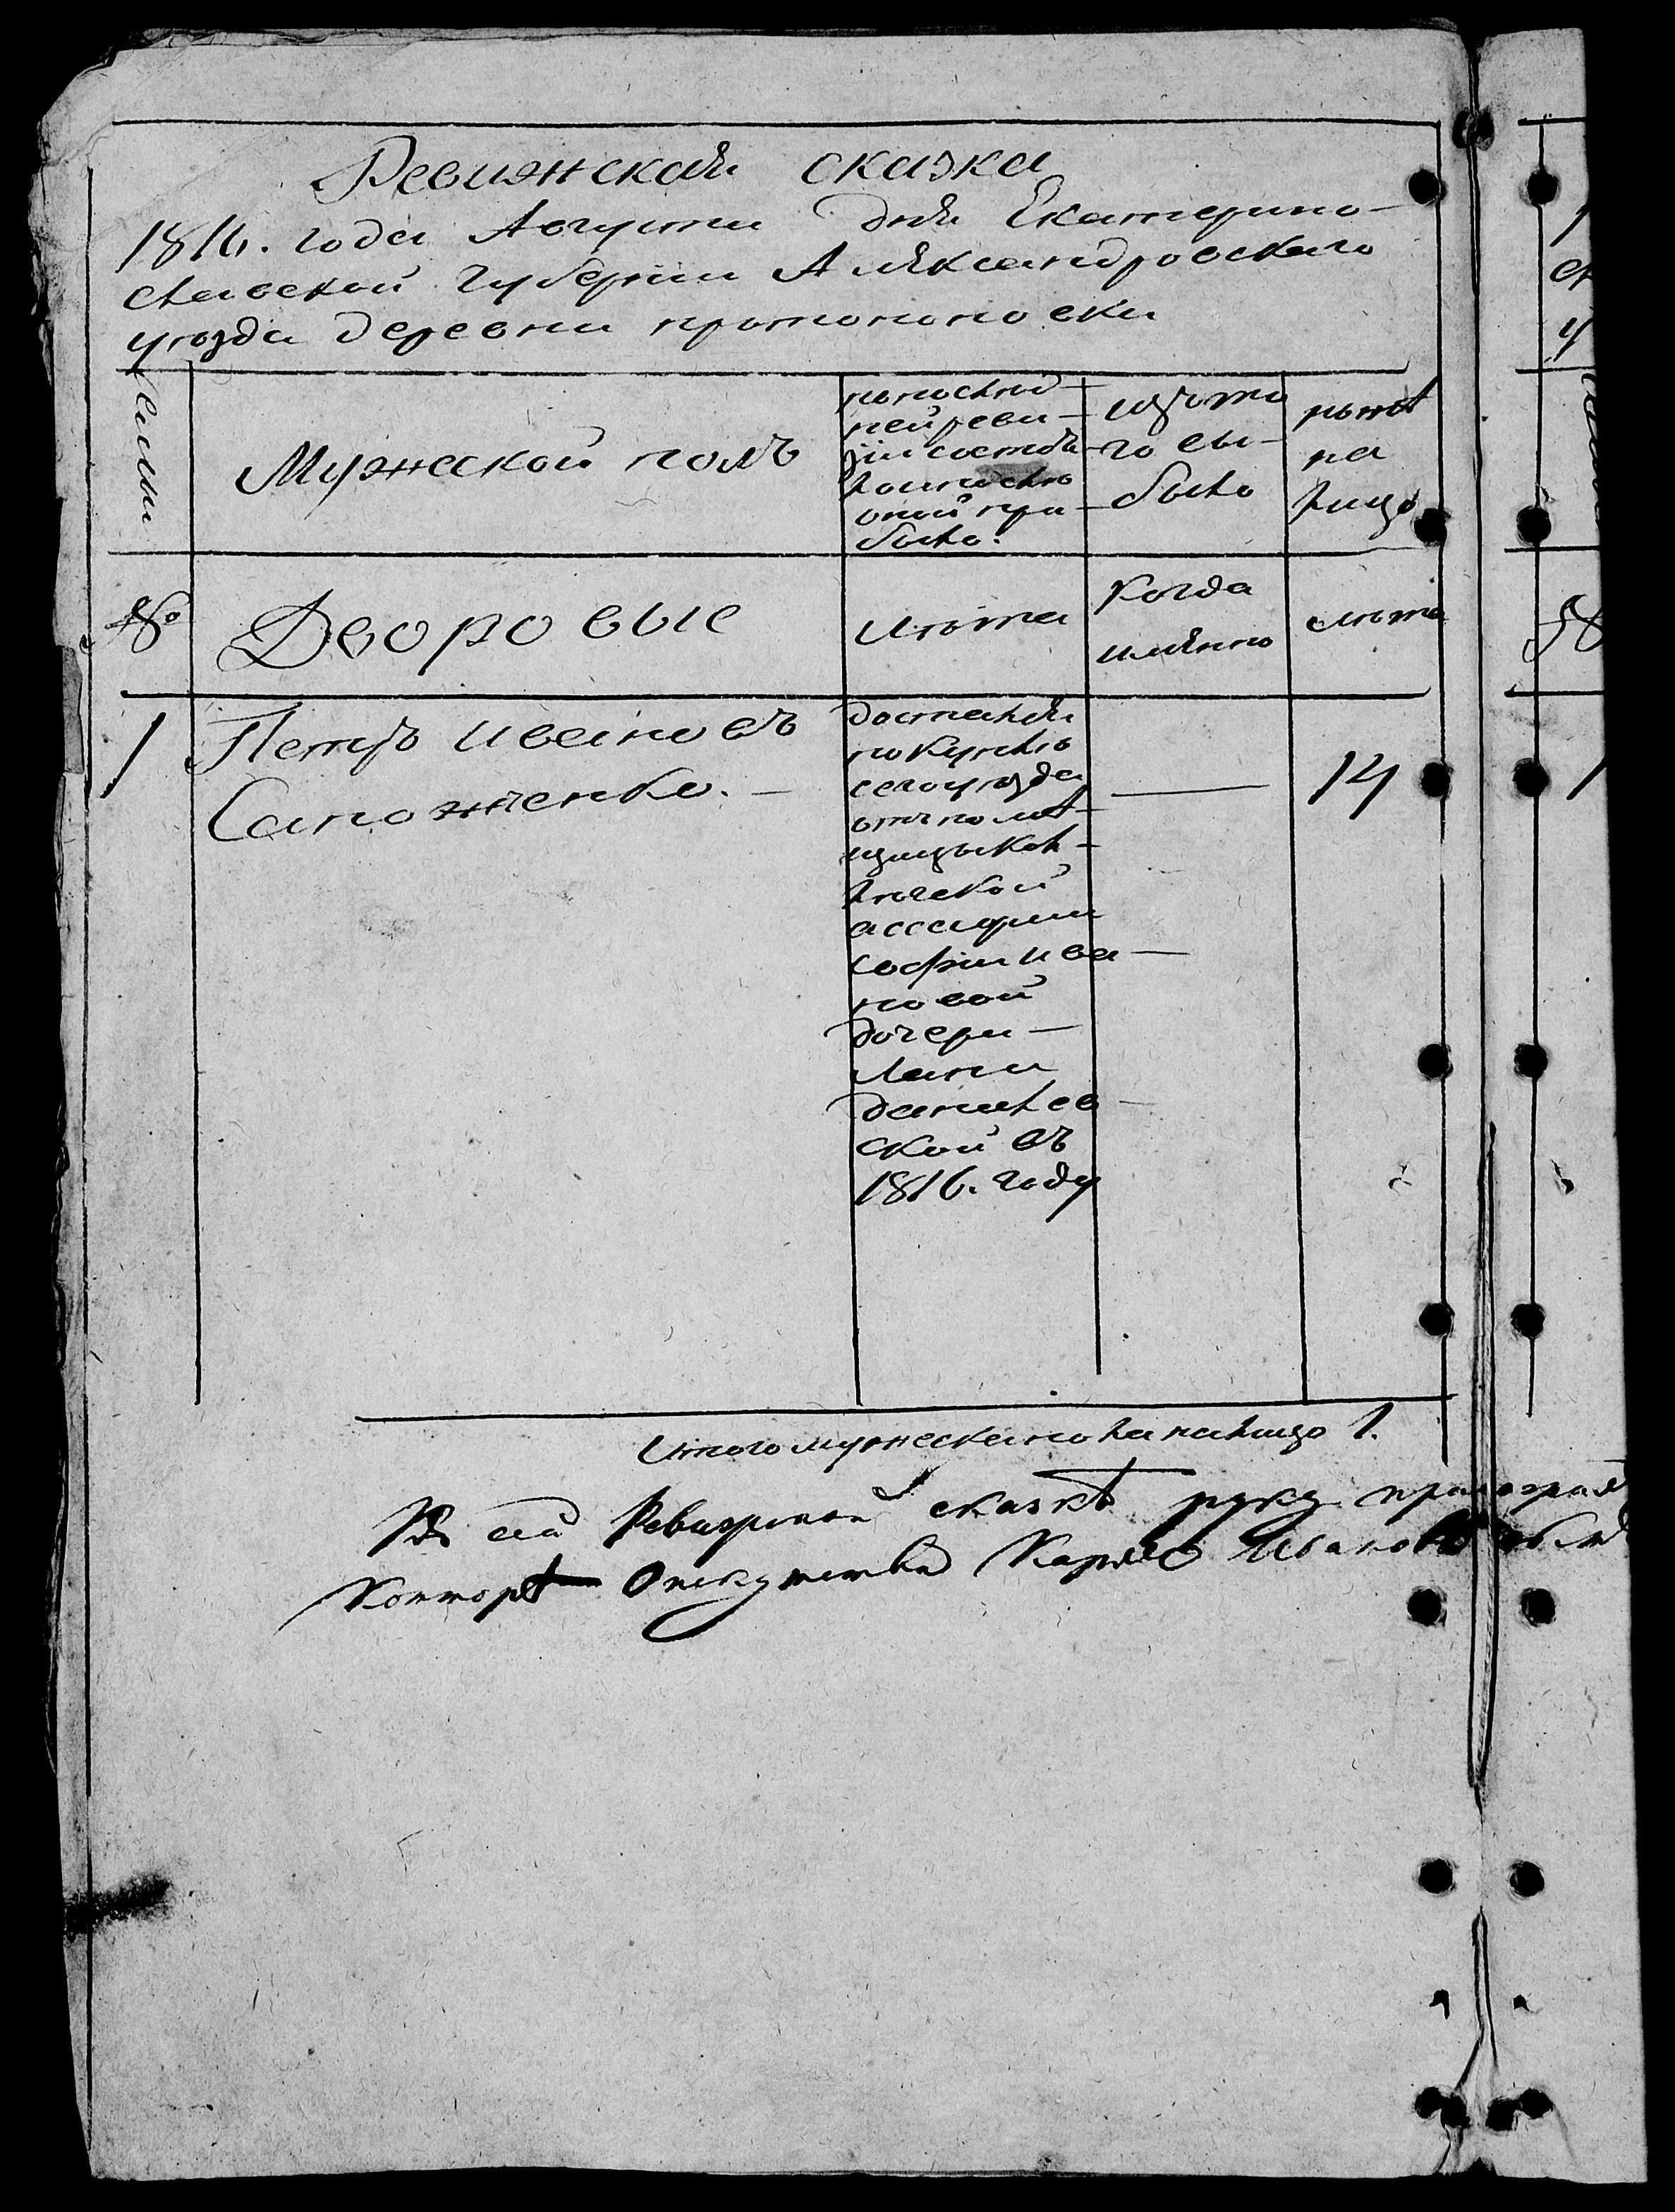 Ревижская сказка
1816. года Августа дня Екатерино-
славской губернии Александровскаго
уезда деревни
Семьи
Мужеской полъ
попослед-
ней реви-
зіи состоя
ло и после
оной при-
было.
изъ то
го вы-
было
ныне
на
лицо
№
Дворовые
лета
Когда
имянно
лета
1
Петръ Ивановъ
Сапожченко. —
достался
покупкою
сего уезда
отъ поме-
щицы кол-
лежской
ассесорши
Софии Ива-
новой
дочери —
Данилев-
ской въ
1816. году
—
14
Итого мужеска пола налицо 1.
Къ сей Ревизской сказкѣ руку
Конторѣ Опекунства Иванов